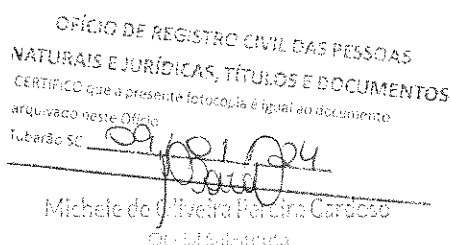 OFÍCIO DE REGISTRO CIVIL DAS PESSOAS
NATURAIS E JURÍDICAS, TÍTULOS E DOCUMENTOS
CERTIFICO que a presente fotocopia é igual ao documento
arquivado neste Ofício
Tubarão SC 09/01/24
Michele de Oliveira Pereira Cardoso